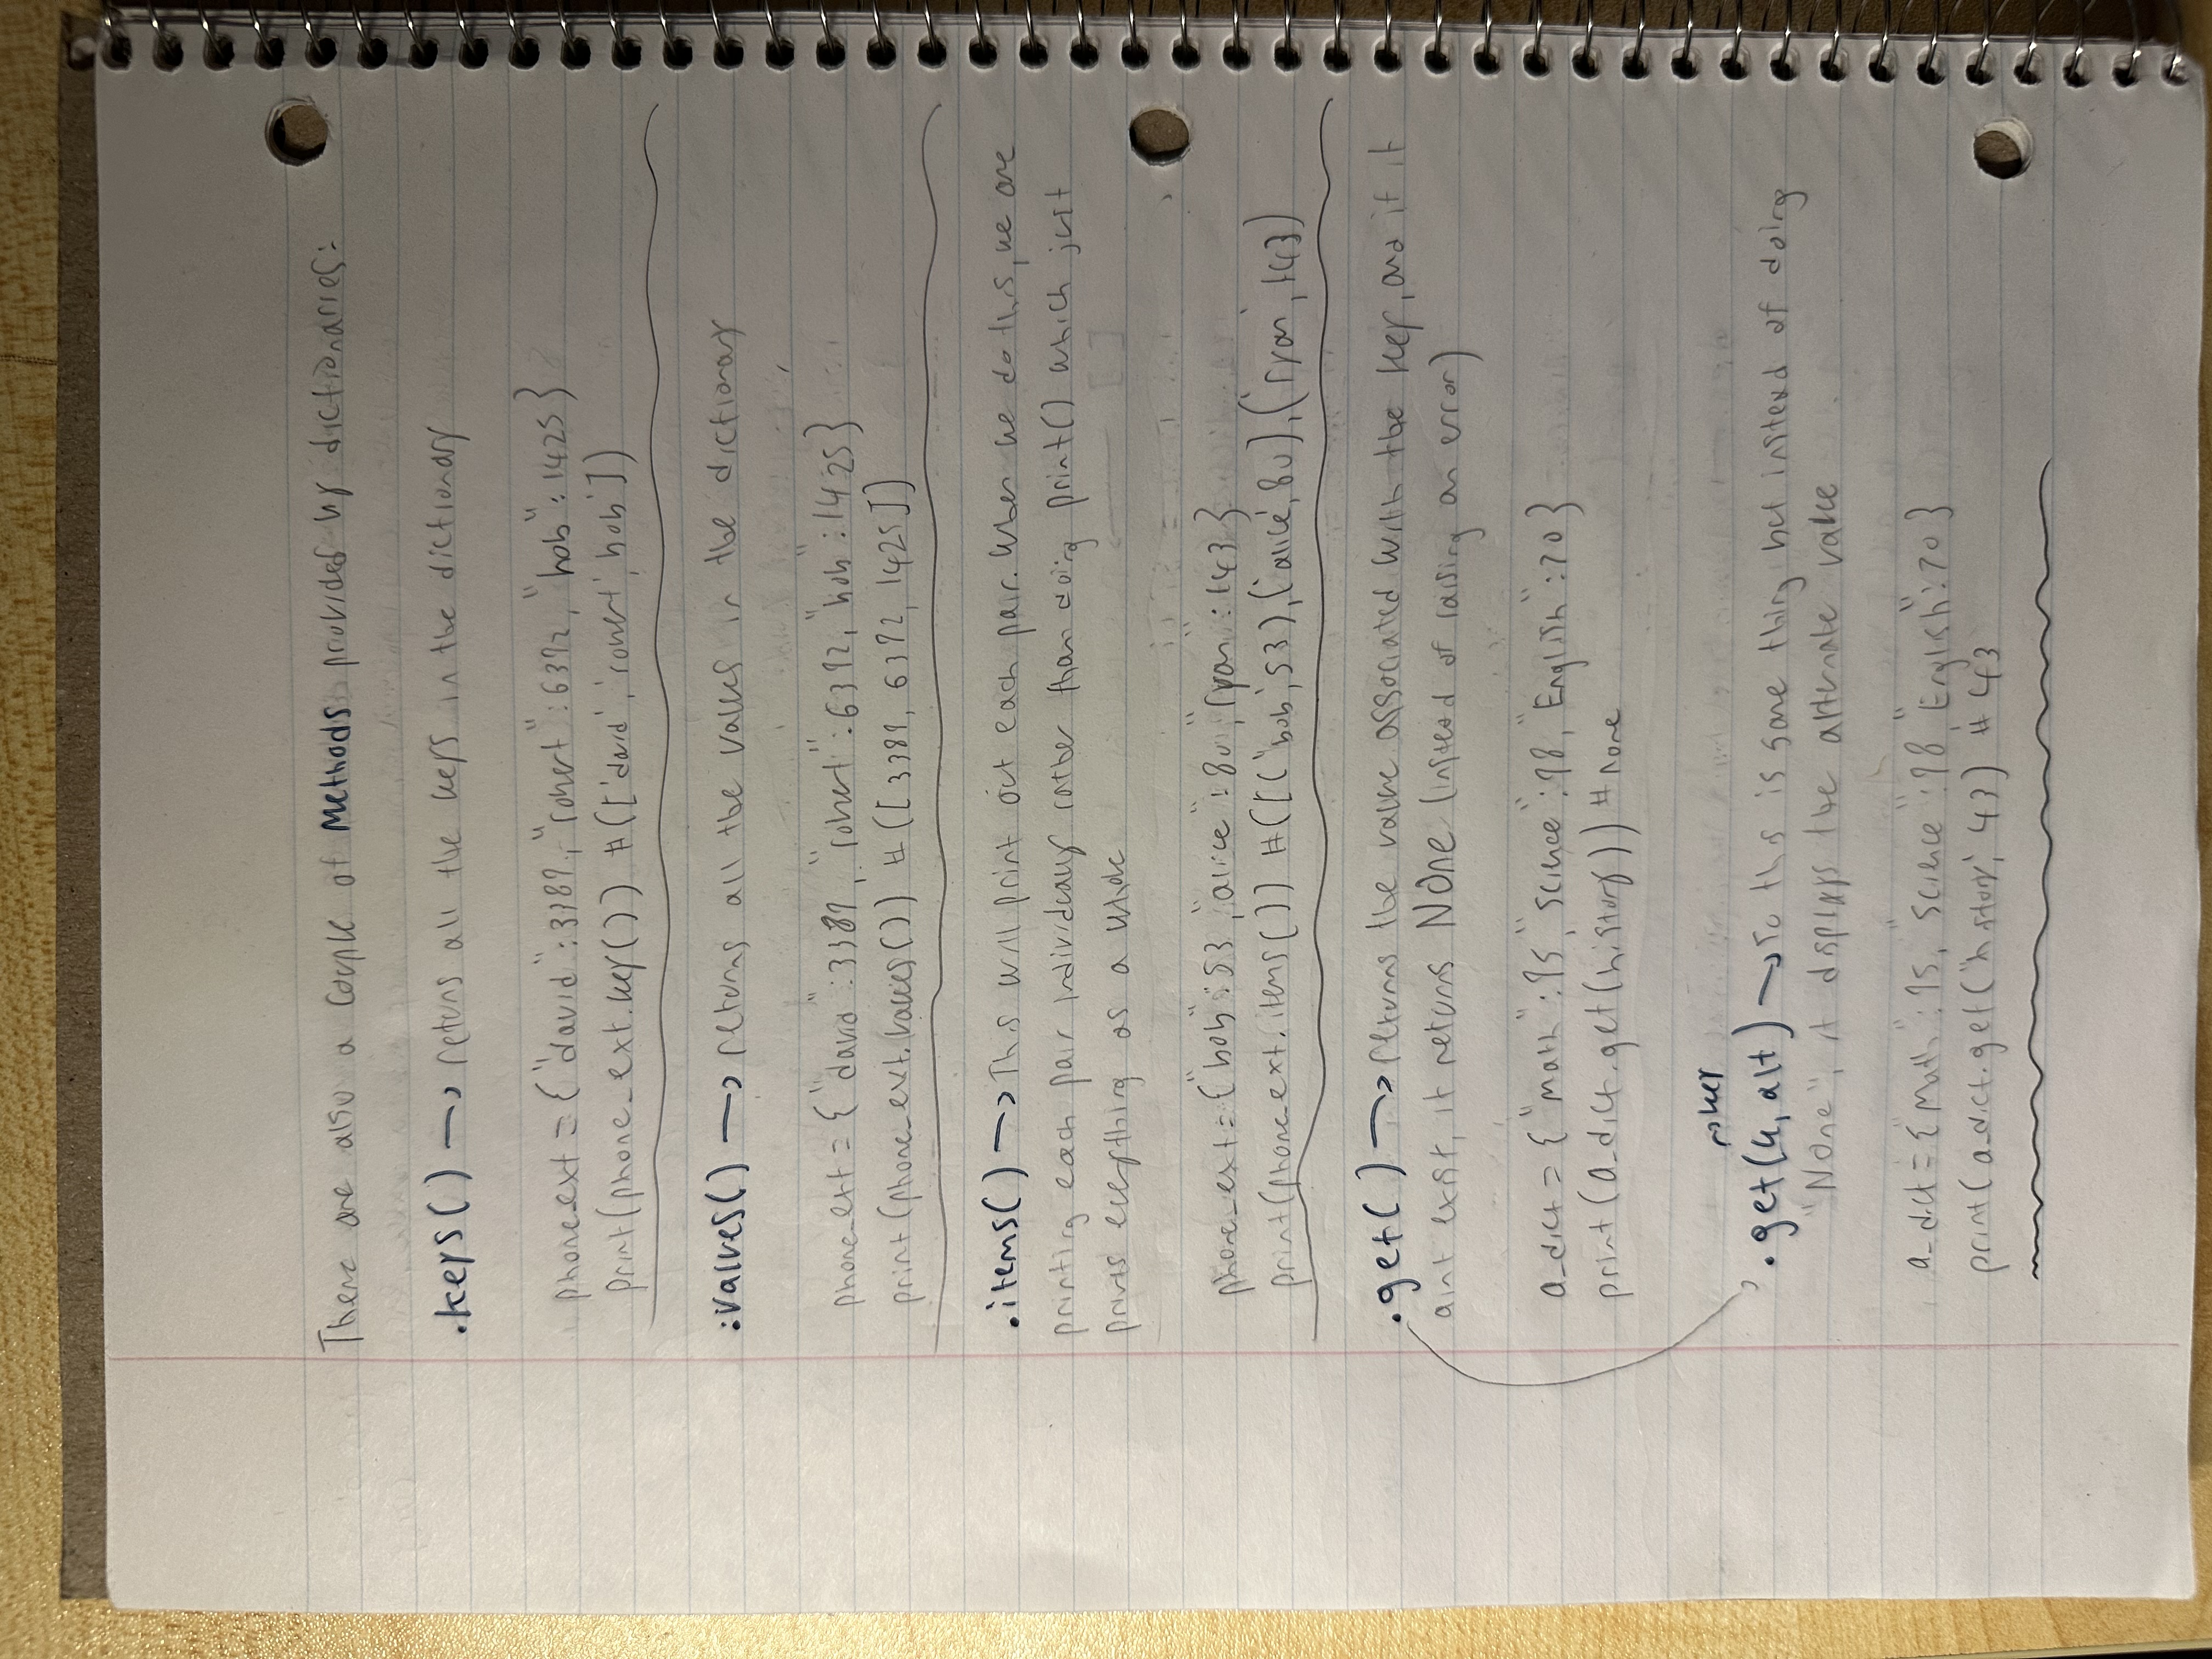 There are also a couple of Methods provided by dictionaries:
.keys() → returns all the keys in the dictionary
phone_ext = {"david":3389, "robert":6392, "bob":1425}
print(phone_ext.key()) #(['david', 'robert', bob'])
.values() → returns all the values in the dictionary
phone_ext = {"david":3389, "robert":6392, "bob":1425}
print(phone_ext.values()) #([3389, 6392, 1425])
.items() → This will print out each pair. When we do this, we are
printing each pair individually rather than doing print() which just
prints everything as a whole
phone_ext = {"bob":53, "alice":80, "ryan":143}
print(phone_ext.items()) #([('bob', 53), ('alice', 80), ('ryan', 143)
.get() → returns the value associated with the key, and if it
aint exist, it returns None (instead of raising an error)
a_dict = {"Math":95, "Science":98, "English":70}
print(a_dict.get(history)) # none
→ key
.get(k, alt) → So this is same thing but instead of doing
"None", it displays the alternate value
a_dict = {"Math":95, "Science":98, "English":70}
print(a_dict.get("history", 43) # 43